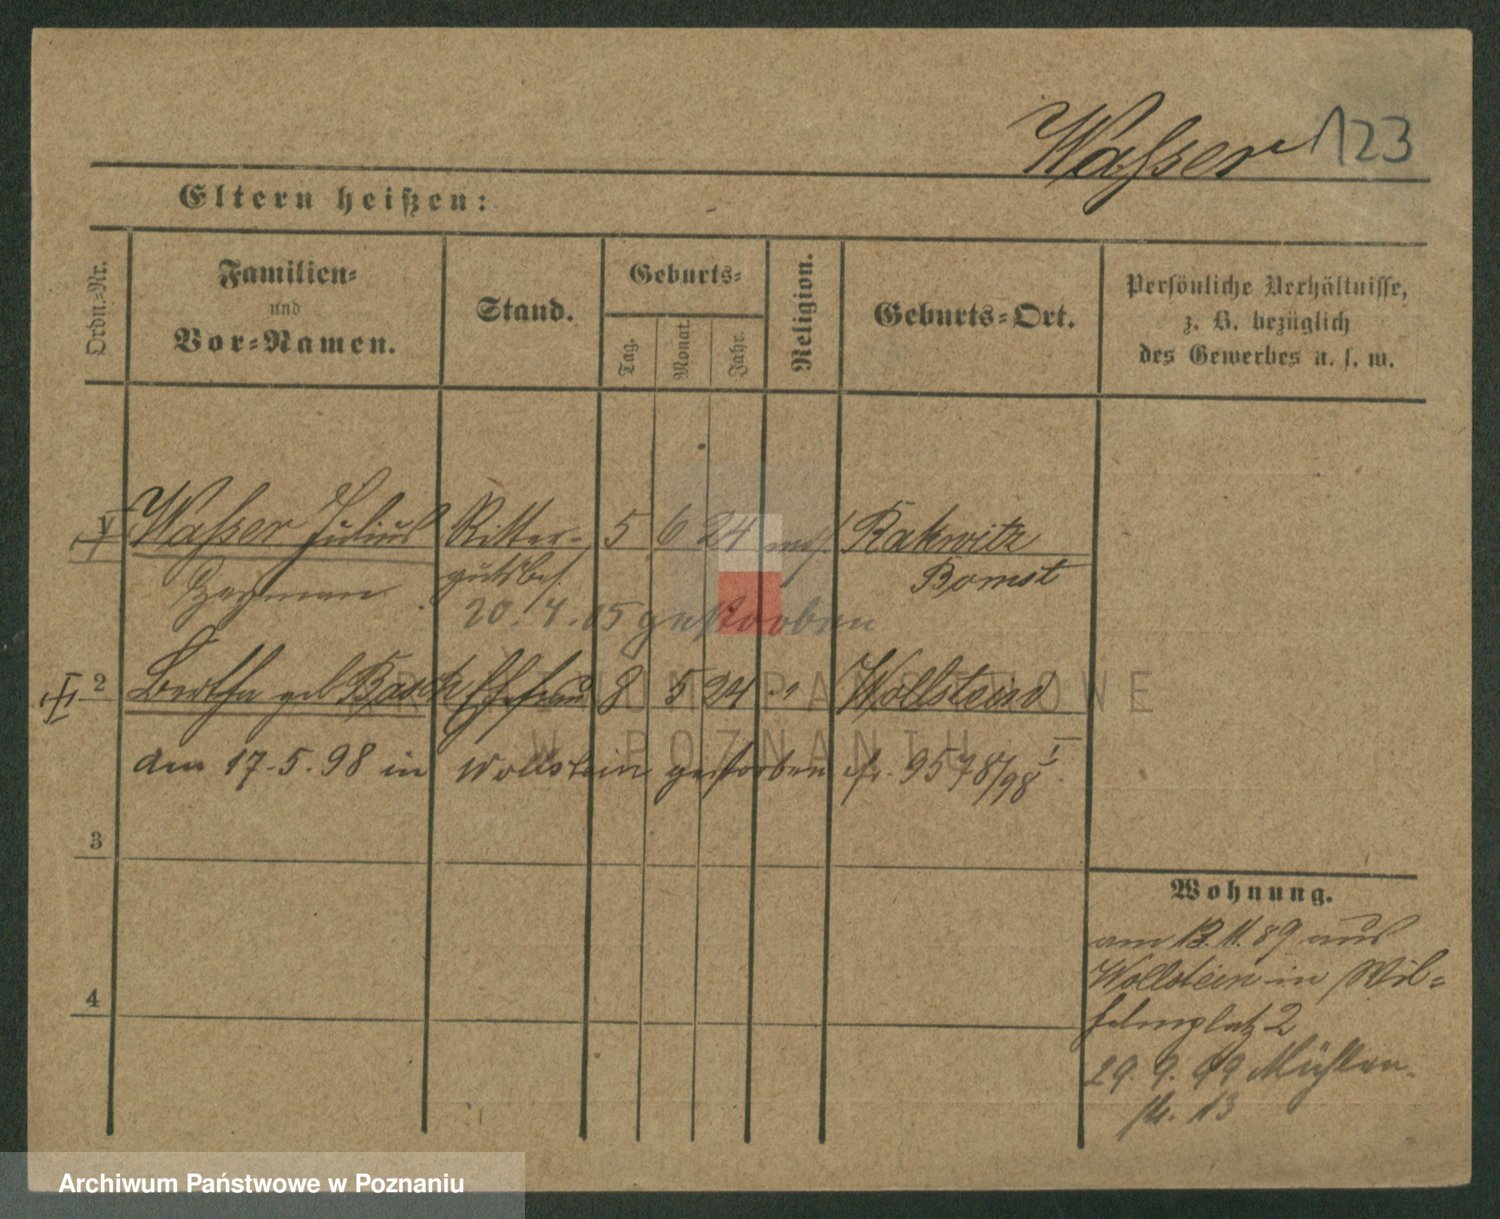 Wasser 123
Eltern heißen:
Ordn.-Nr.
Familien-
und
Vor-Namen.
Stand.
Geburts-
Tag.
Monat.
Jahr.
Religion.
Geburts-Ort.
Persönliche Verhältnisse,
z. B. bezüglich
des Gewerbes u. s. w.
Wasser Julius Ritter- 5 6 24 mos. Rakwitz
gutsbes. Bomst
20. 4. 05 gestorben
2 Bertha geb Basch Ehefrau 8 5 24 " Wollstein
den 17. 5. 98 in Wollstein gestorben cfr. 9578/98 I
3
4
Wohnung.
am 13. 11. 89 aus
Wollstein in Wil-
helmplatz 2
29. 9. 99 Mühlen-
str. 13
ARCHIWUM PAŃSTWOWE
W POZNANIU
Archiwum Państwowe w Poznaniu